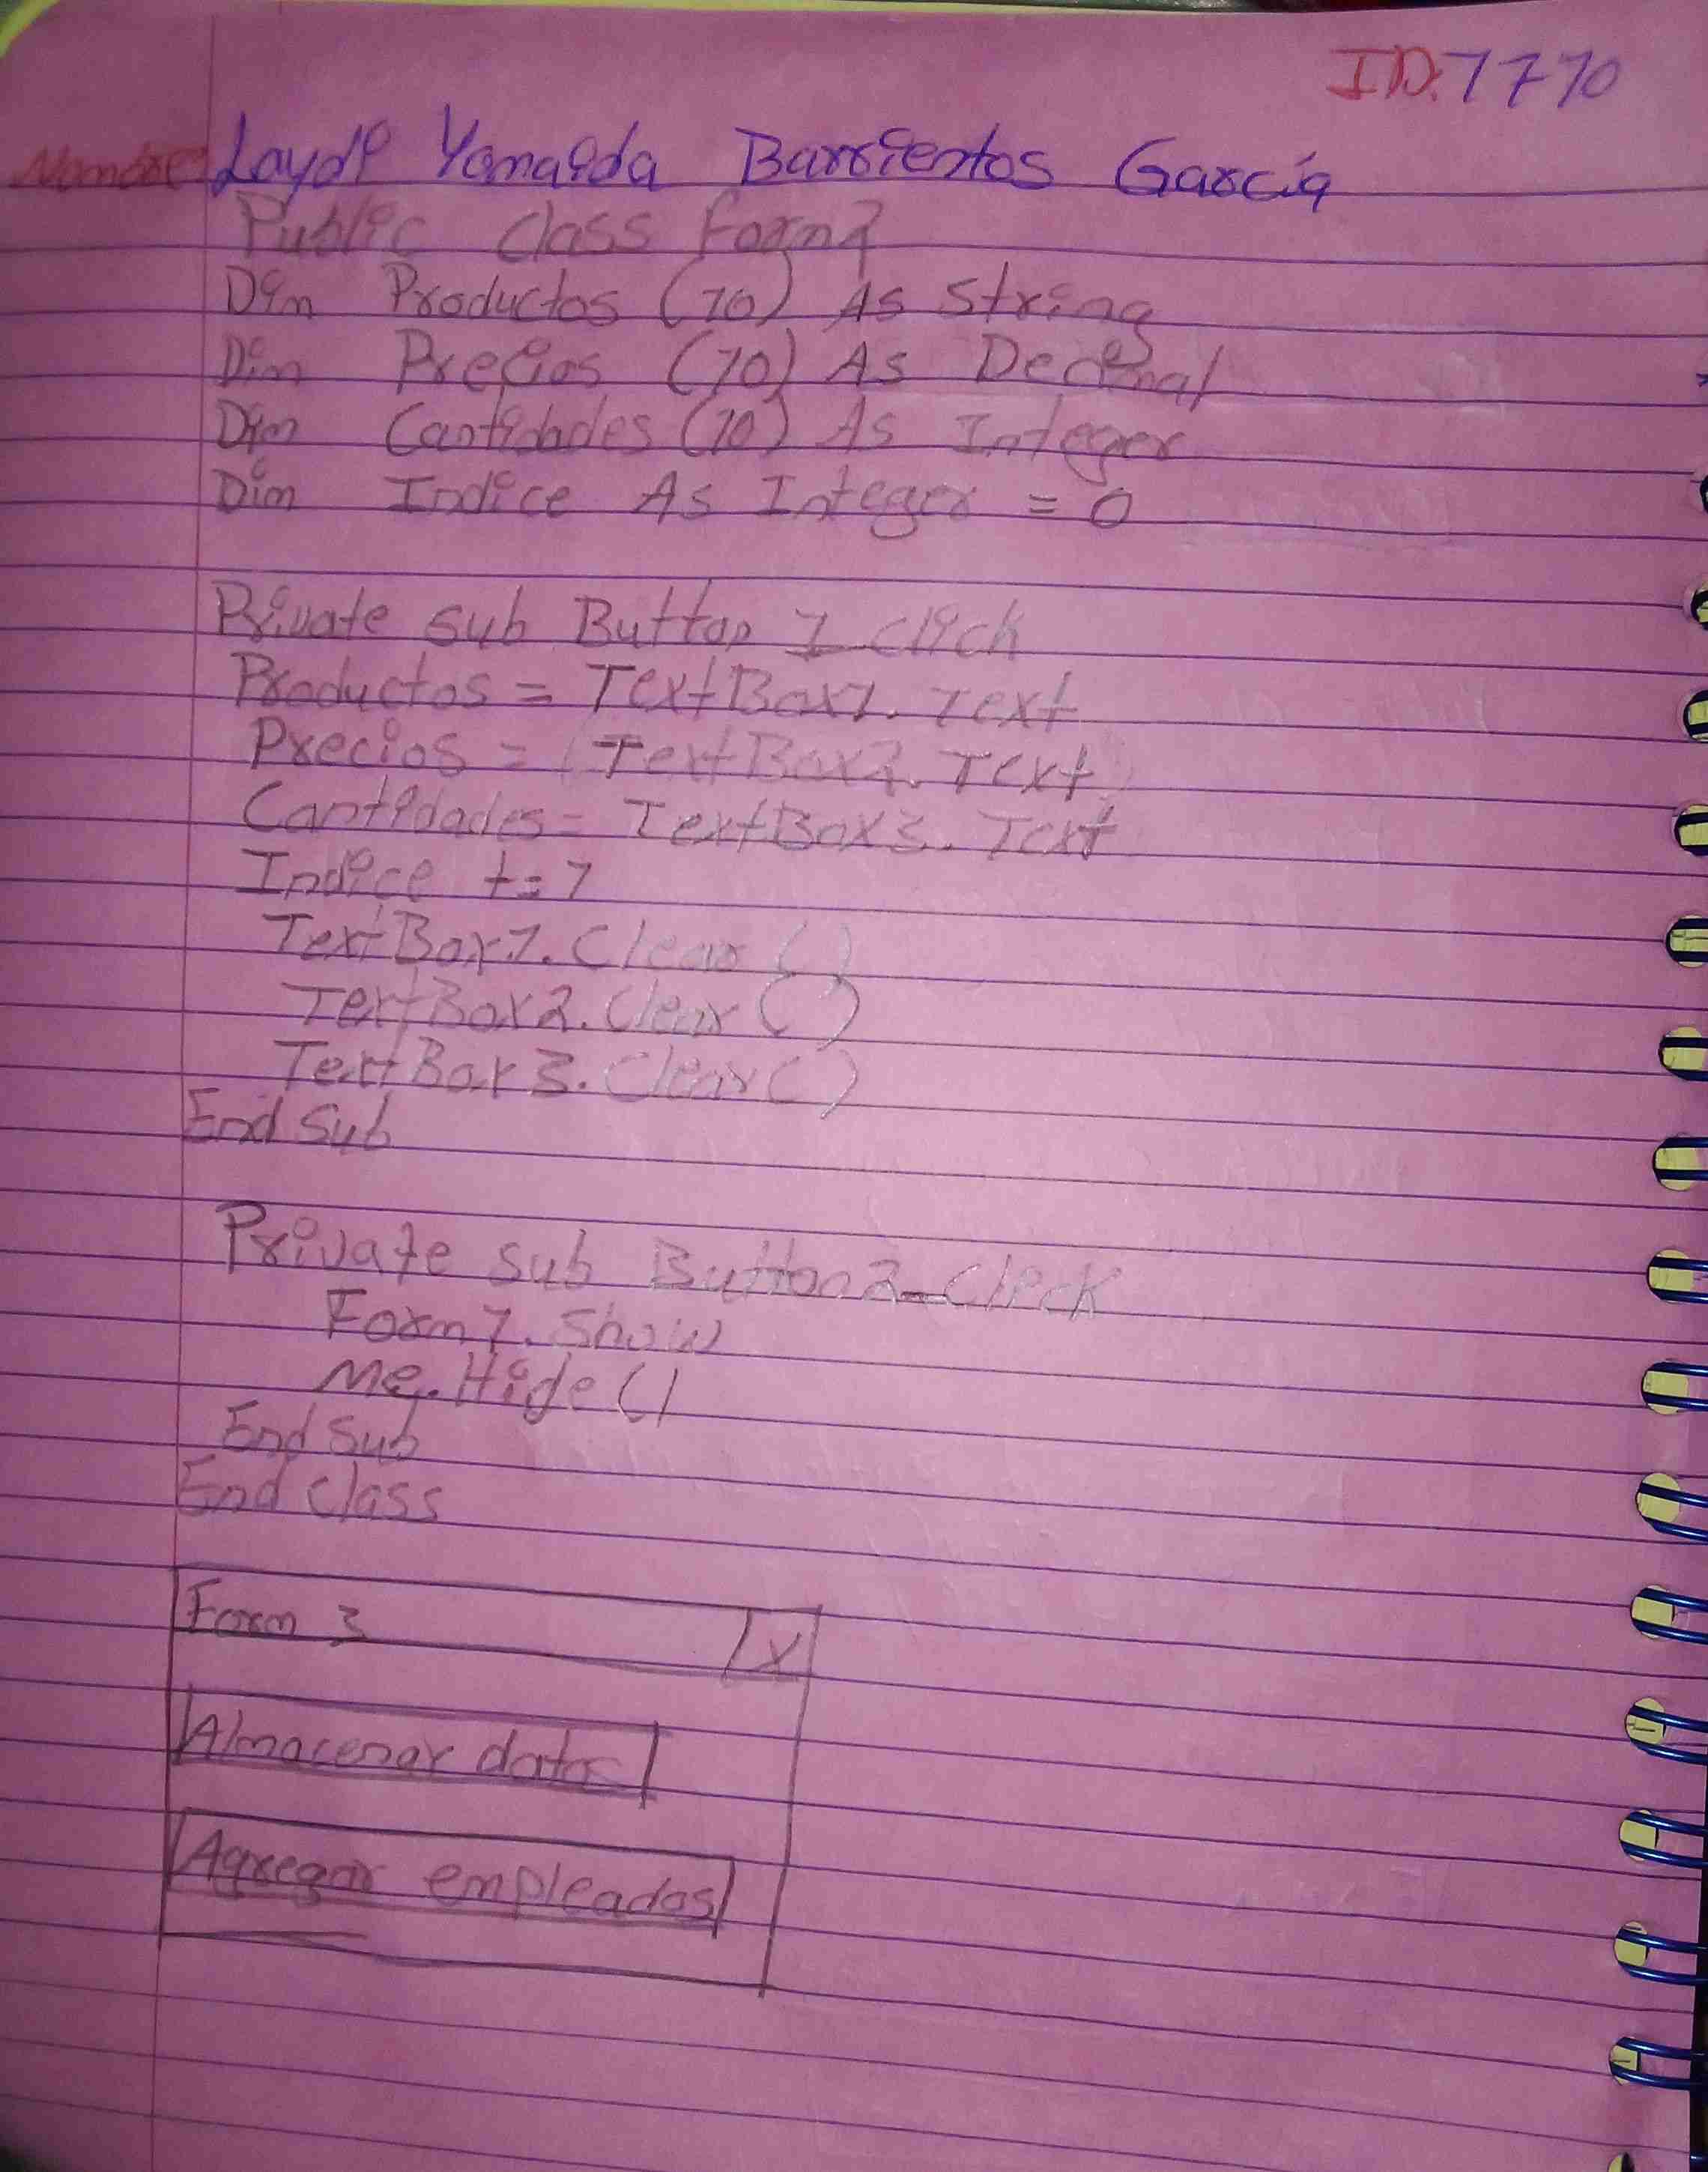 ID:7770
Nombre: Laydi Yomaida Barrientos García
Public class Form2
Dim Productos (10) As String
Dim Precios (10) As Decimal
Dim Cantidades (10) As Integer
Dim Indice As Integer = 0
Private sub Button 1_click
Productos = TextBox1. Text
Precios = (TextBox2. Text)
Cantidades = TextBox3. Text
Indice += 1
TextBox1. Clear ( )
TextBox2. Clear ( )
TextBox3. Clear ( )
End Sub
Private sub Button2_Click
Form1. Show
Me. Hide ()
End Sub
End Class
Form 3 X
Almacenar datos
Agregar empleados